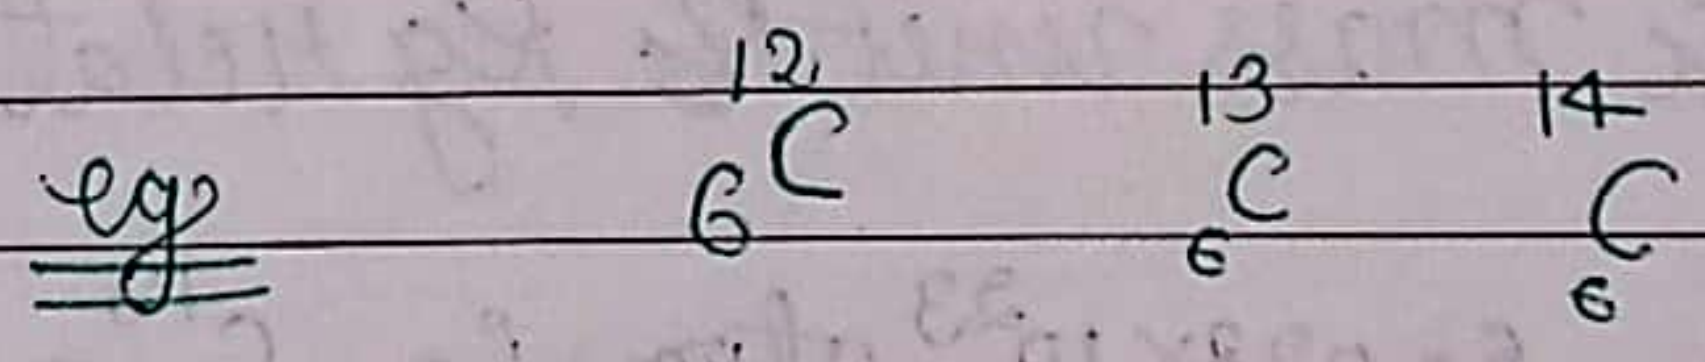 eg ¹²₆C ¹³₆C ¹⁴₆C